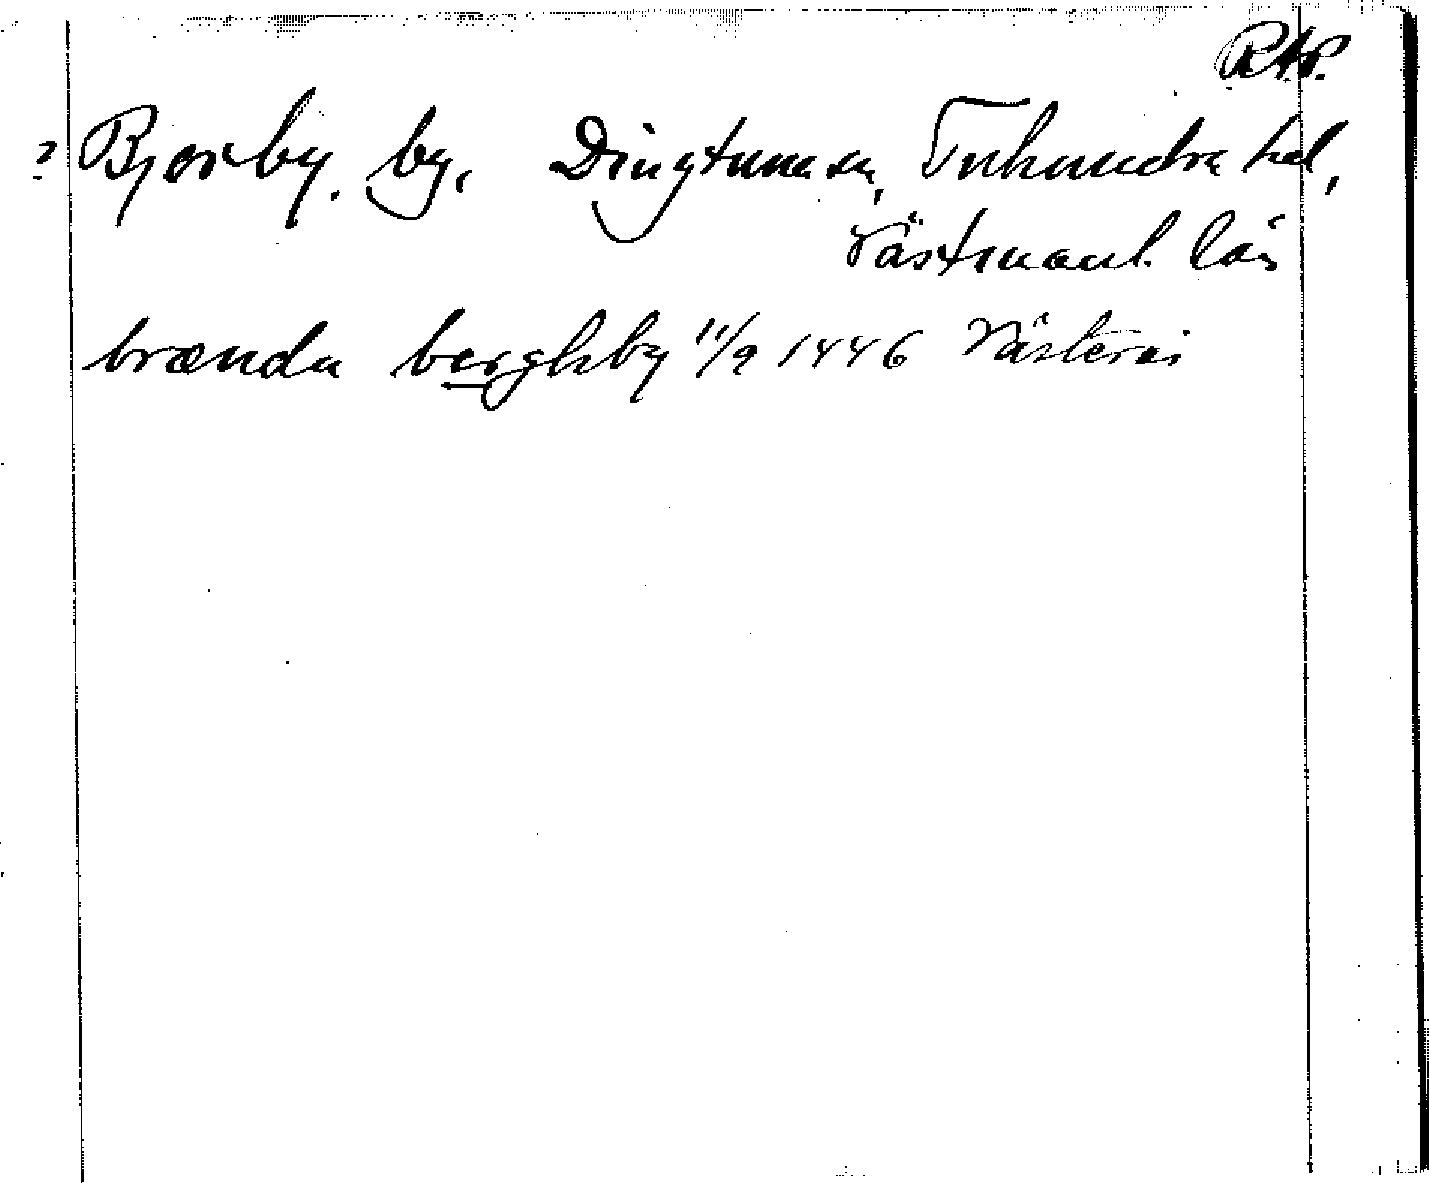 RAP.
? Bjerby, by, Dingtuna sn, Tuhundra hd,
Västmanl. län
brænda berghby 11/9 1446 Västerås